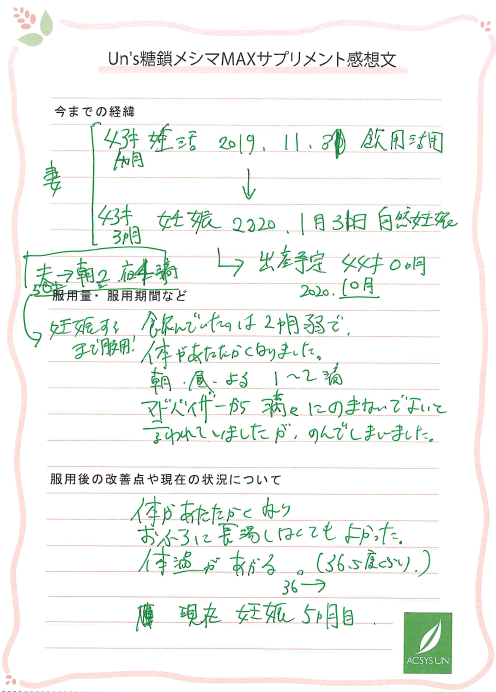 Un's糖鎖メシマMAXサプリメント感想文
今までの経緯
妻
43才 妊活 2019.11. 飲用活用
1ヵ月
↓
43才 妊娠 2020.1月31日 自然妊娠
3ヵ月
↳ 出産予定 44才0ヵ月
2020.10月
夫→朝2 夜 滴
服用量・服用期間など
妊娠する
まで服用!
飲んでいたのは2ヶ月弱で、
体があたたかくなりました。
朝・昼・よる 1〜2滴
アドバイザーから 満 にのまないでよいと
言われていましたが、のんでしまいました。
服用後の改善点や現在の状況について
体があたたかくなり
おふろに長湯しなくてもよかった。
体温があがる。(36.5度くらい.)
36→
現在 妊娠5ヵ月目.
ACSYS UN